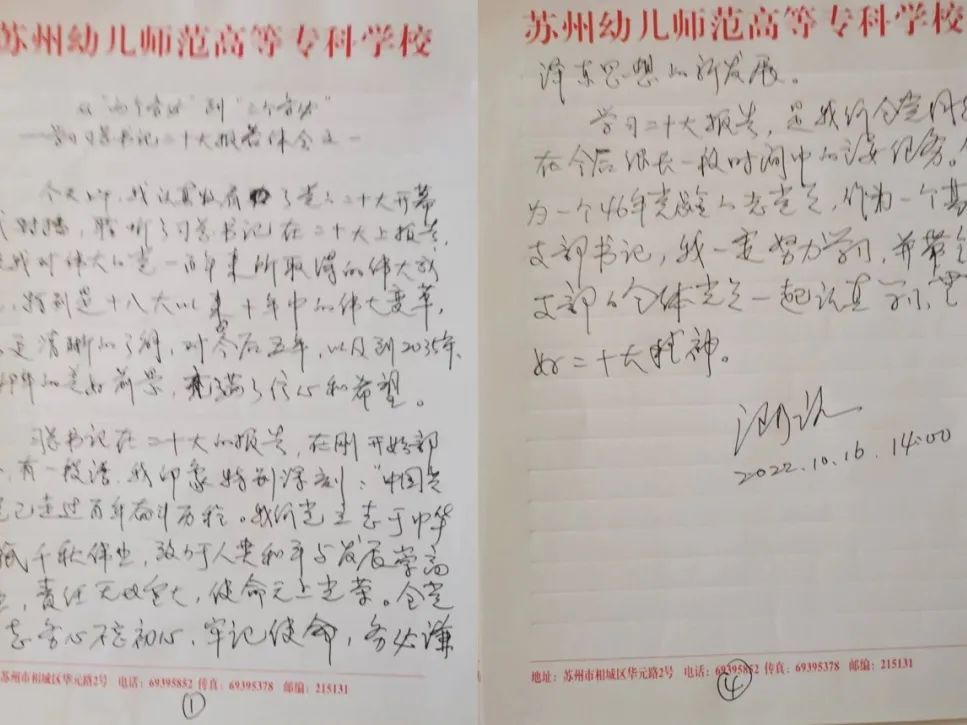 苏州幼儿师范高等专科学校
从“两个务必”到“三个务必”
——学习习总书记二十大报告体会之一
今天上午，我认真收看了党的二十大开幕
式时隆，聆听了习总书记在二十大上报告，
我对伟大的党一百年来所取得的伟大成
，特别是十八大以来十年中的伟大变革，
更清晰的了解，对今后五年，以及到2035年、
年的美好前景，充满了信心和希望。
习总书记在二十大的报告，在刚开始部
，有一段话，我印象特别深刻：“中国共
已走过百年奋斗历程。我们党立志于中华
千秋伟业，致力于人类和平与发展崇高
，责任无比重大，使命无上光荣。全党
志务必不忘初心、牢记使命，务必谦
苏州市相城区华元路2号 电话：69395852 传真：69395378 邮编：215131
①
苏州幼儿师范高等专科学校
泽东思想的新发展。
学习二十大报告，是我们全党同
在今后很长一段时间中的主要任务。
为一个46年党龄的老党员，作为一个基
支部书记，我一定努力学习，并带
支部的全体党员一起认真学习、
好二十大精神。
2022.10.16.14:00
地址：苏州市相城区华元路2号 电话：69395852 传真：69395378 邮编：215131
④